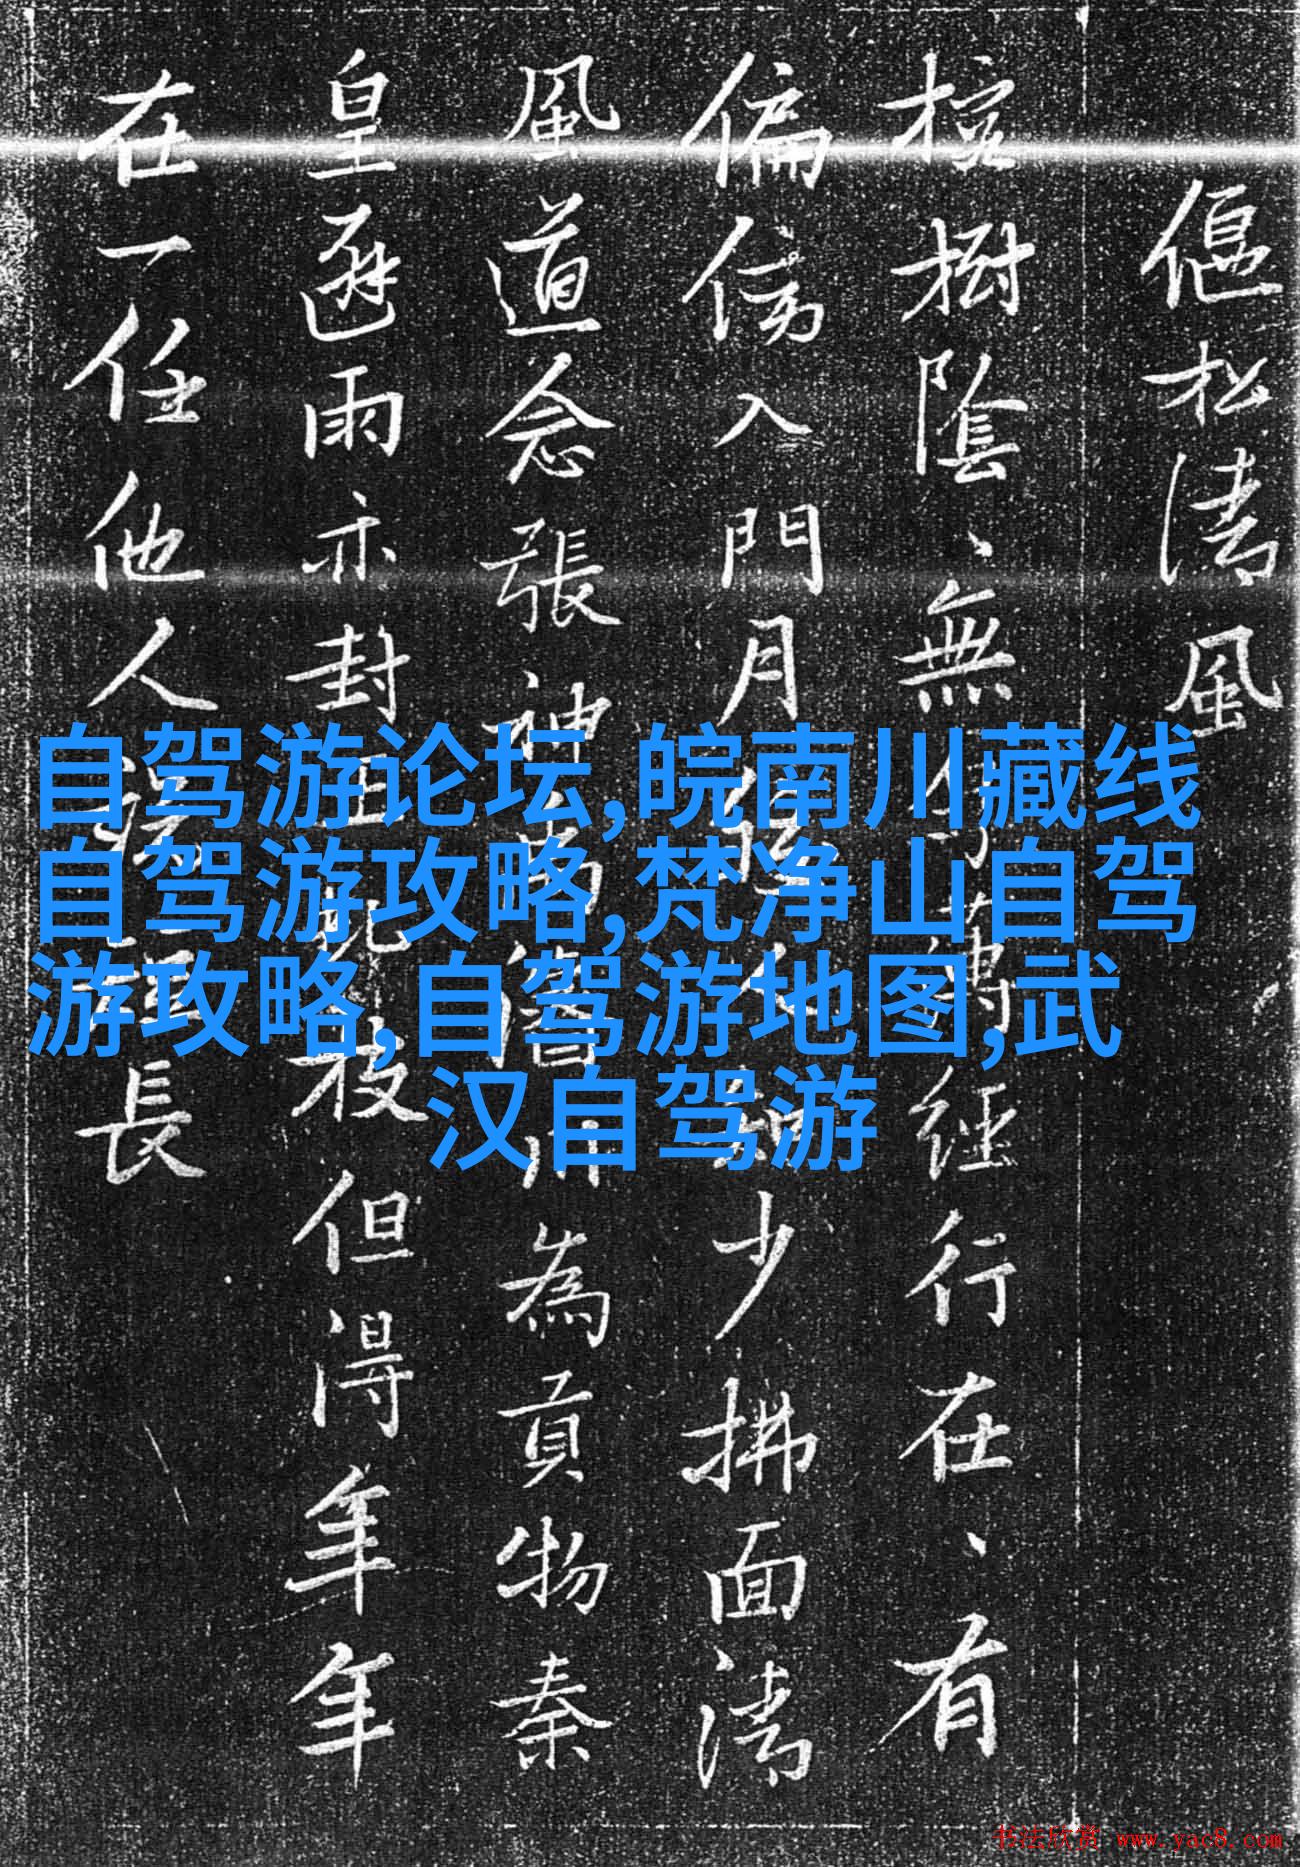 偃松清風
樹陰、無經行在、有
偏傍入門月少拂面清
風道念張神為貢物秦
皇避雨亦封枝但得年年
在一任他人長
自驾游论坛,皖南川藏线
自驾游攻略,梵净山自驾
游攻略,自驾游地图,武
汉自驾游
书法欣赏 www.yac8.com